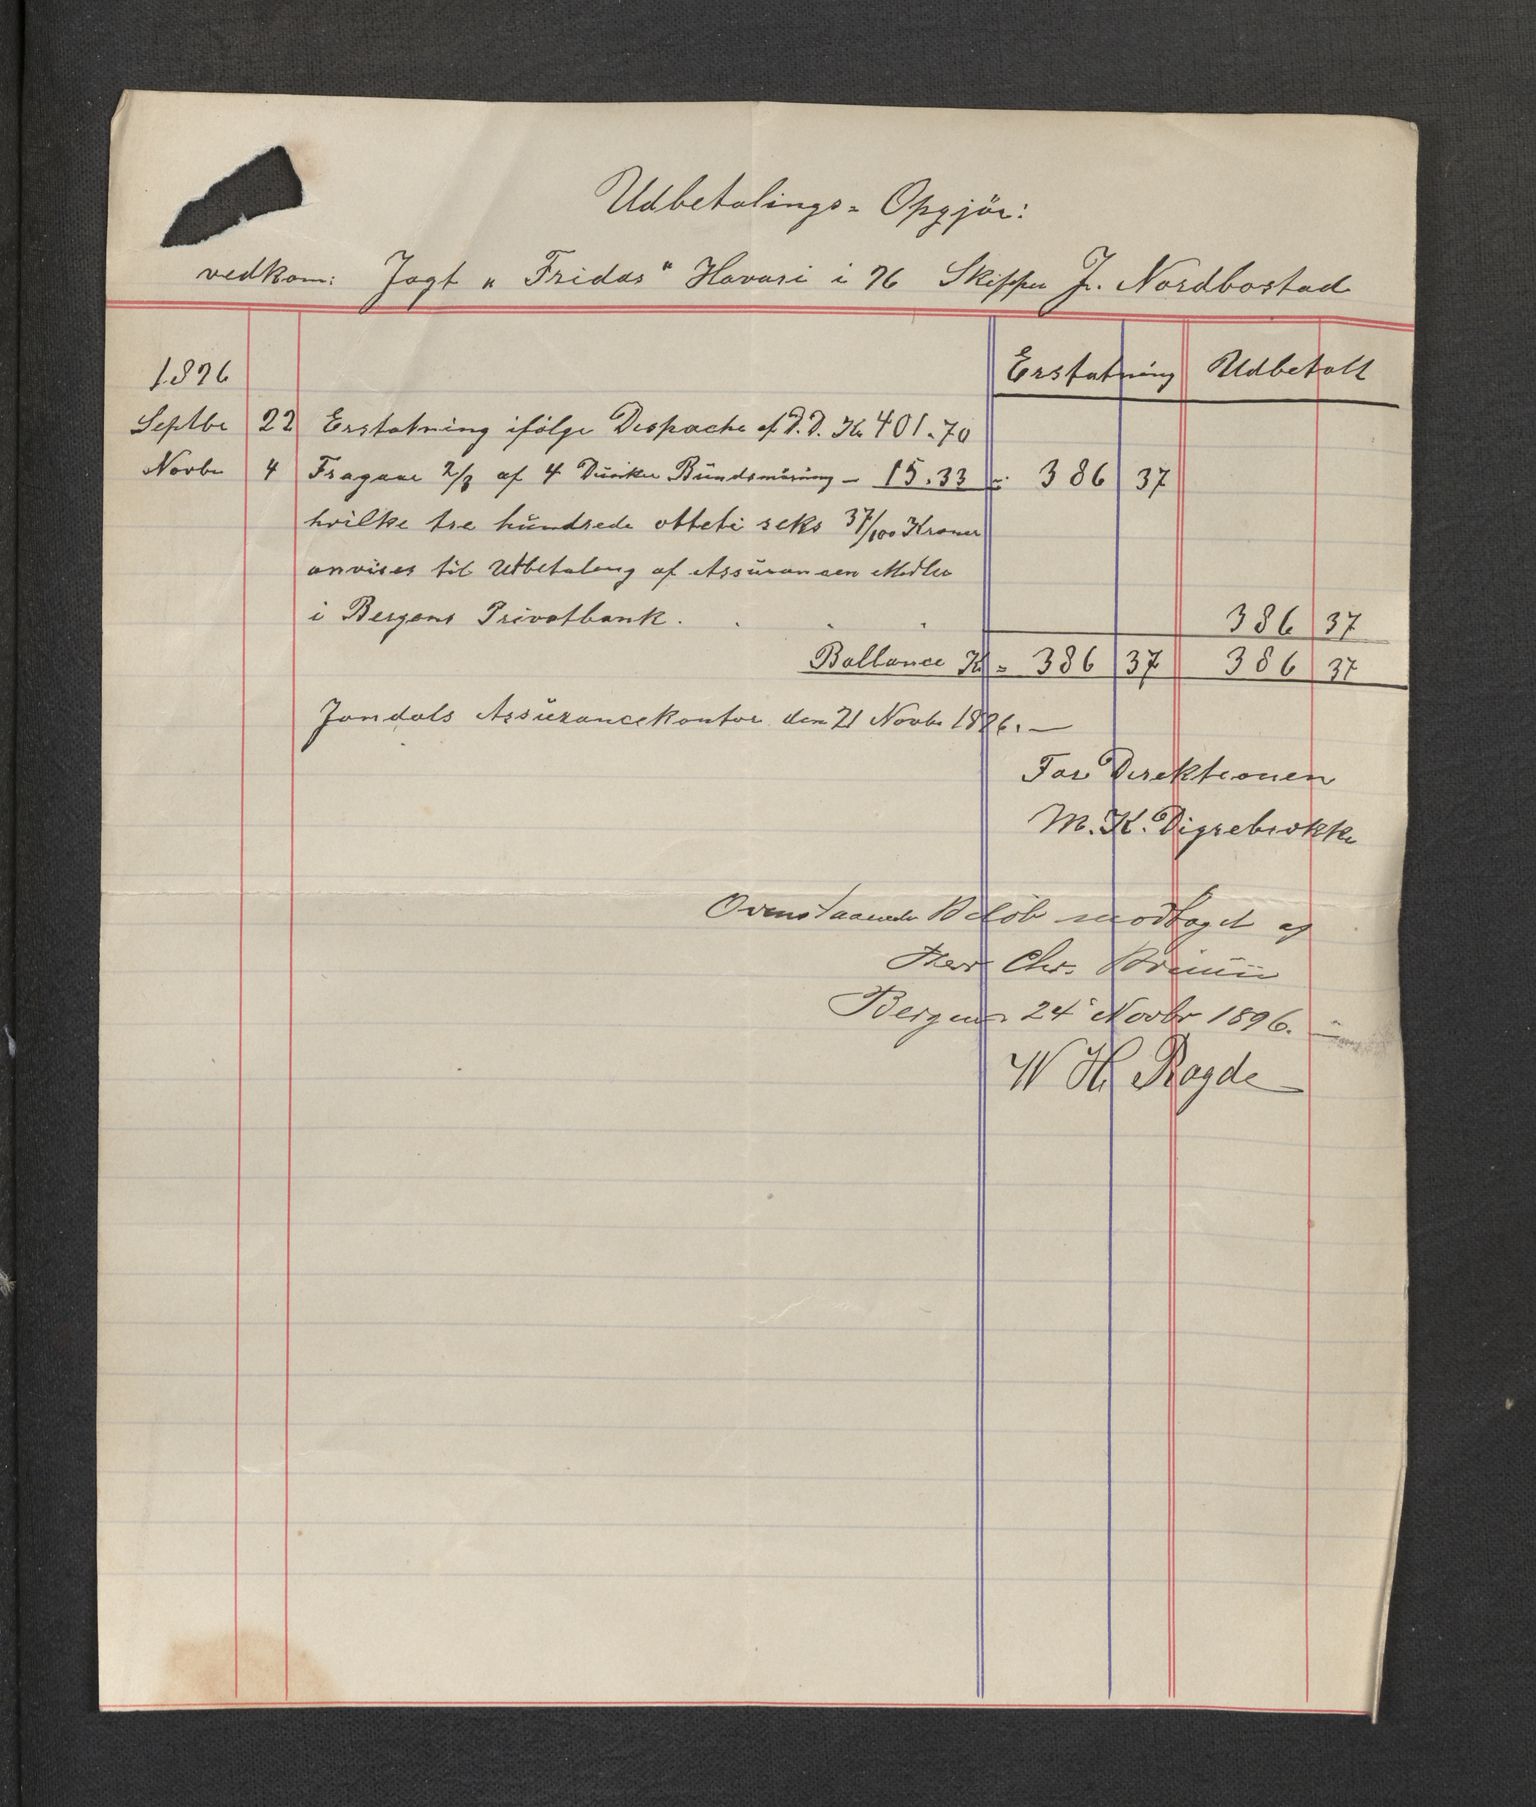 Udbetalings= Opgjör:
vedkom: Jagt „ Fridas" Havari i 96 Skipper J. Nordbostad
Erstatning Udbetalt
1896
Septbr 22 Erstatning ifölge Despache af D.D. Kr 401.70
Novbr 4 Fragaar 2/3 af 4 Dunker Bundsmöring - 15.33 = 386 37
hvilke tre hundrede otteti seks 37/100 Kroner
anvises til Udbetaling af Assurancen Midler
i Bergens Privatbank . . . . 386 37
Ballance Kr = 386 37 386 37
Jondals Assurancekontor den 21 Novbr 1896. —
For Direktionen
M. K. Digrebrokke
Ovenstaaende Belöb modtaget af
Herr Chr. Bruun
Bergen 24 Novbr 1896. —
W H Ragde